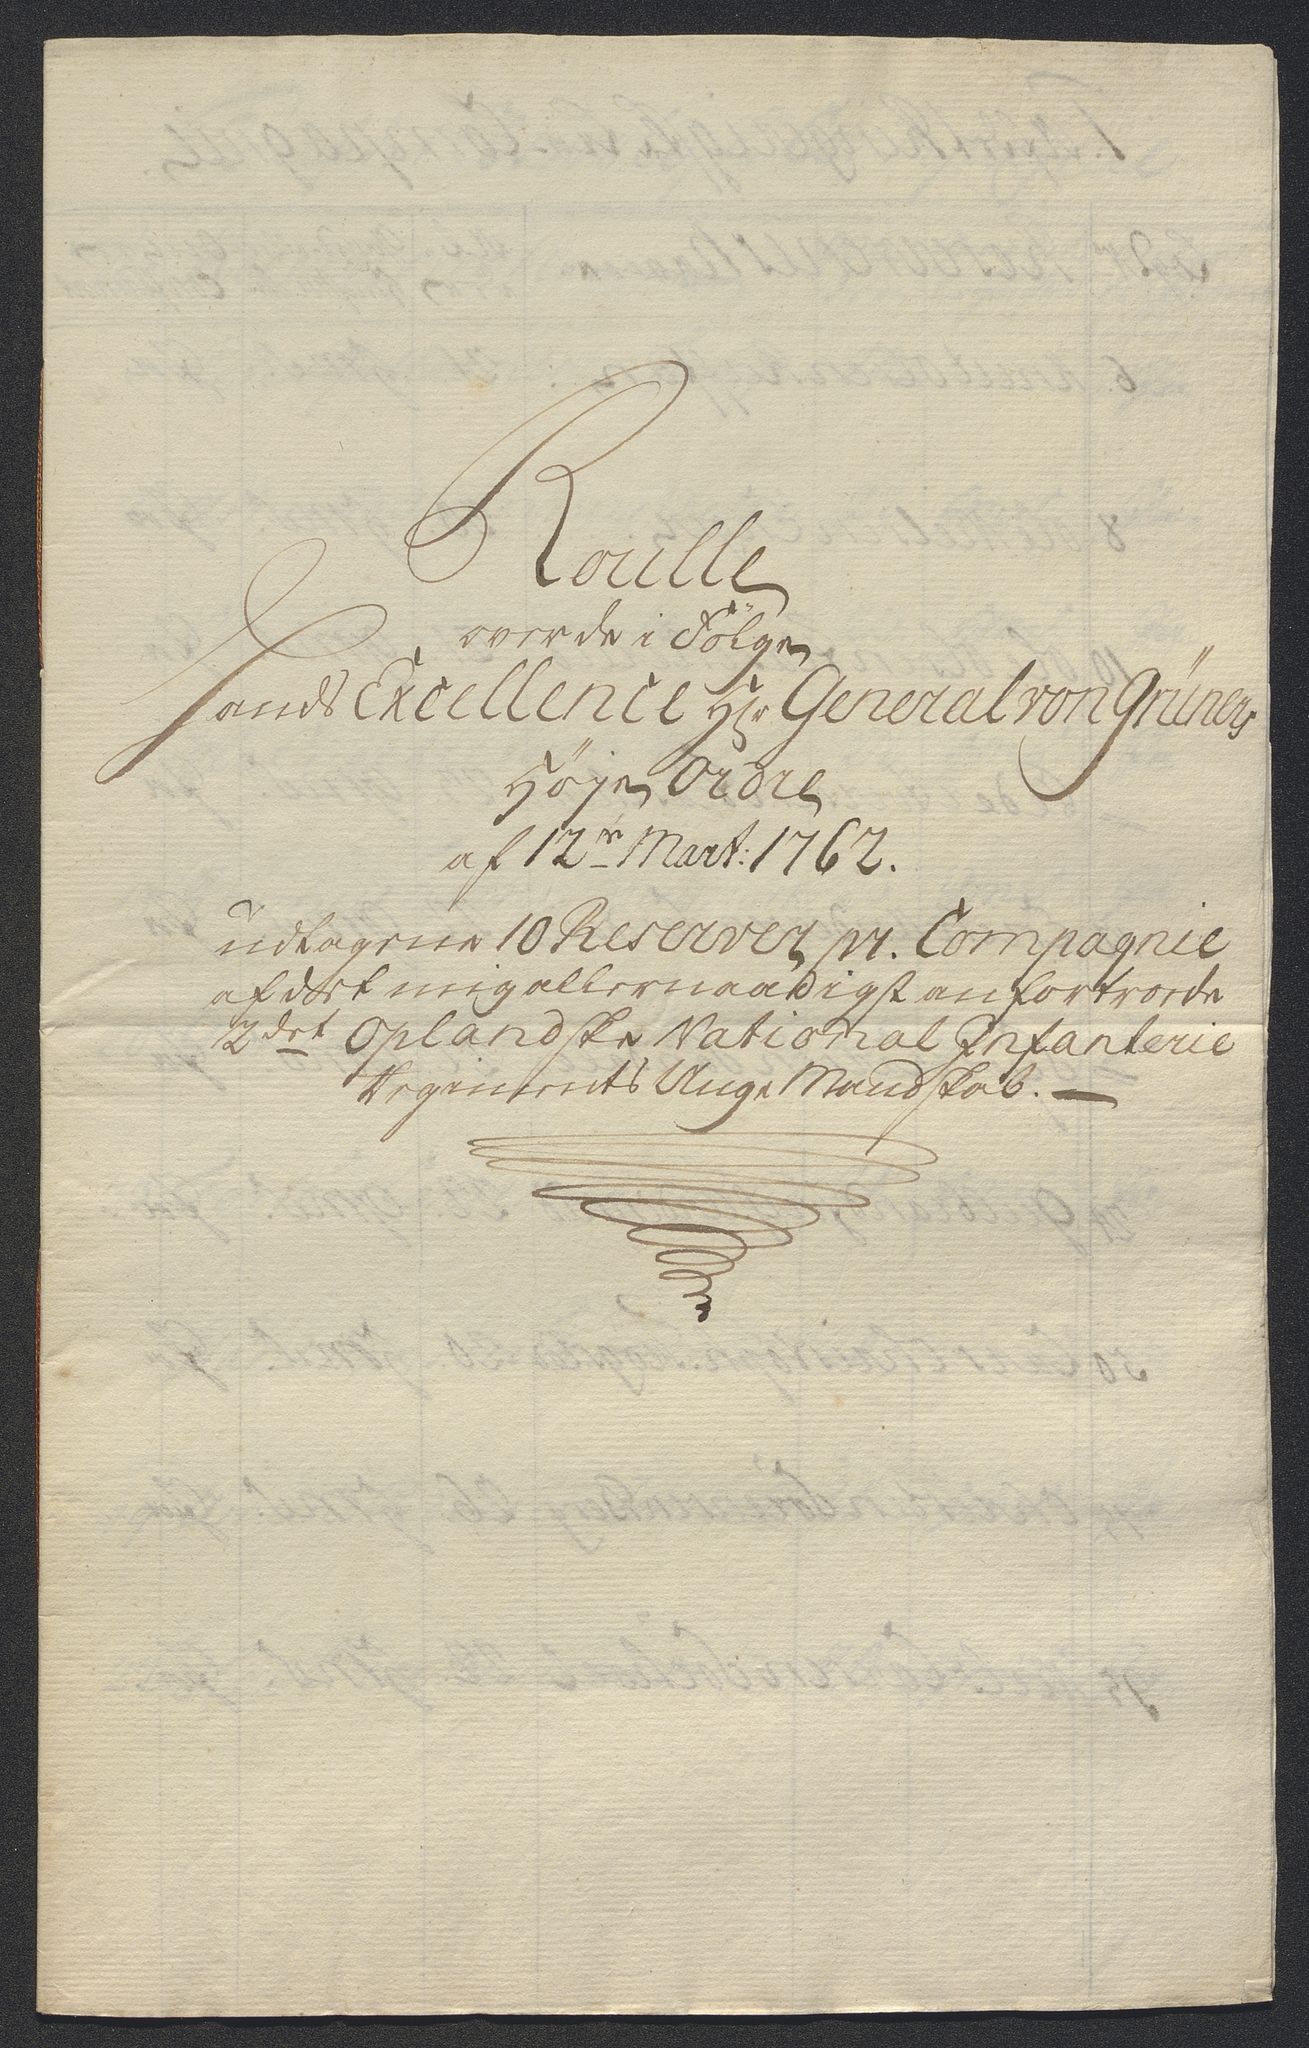 Roulle
over de i Fölge
Hands Excellence Hr General von Grüners
Höye Ordre
af 12te Mart: 1762.
udtagene 10 Reserver pr. Compagnie
af det mig allernaadigst anfortroede
2det Oplandske National Infanterie
Regiments Unge Mandskab. —